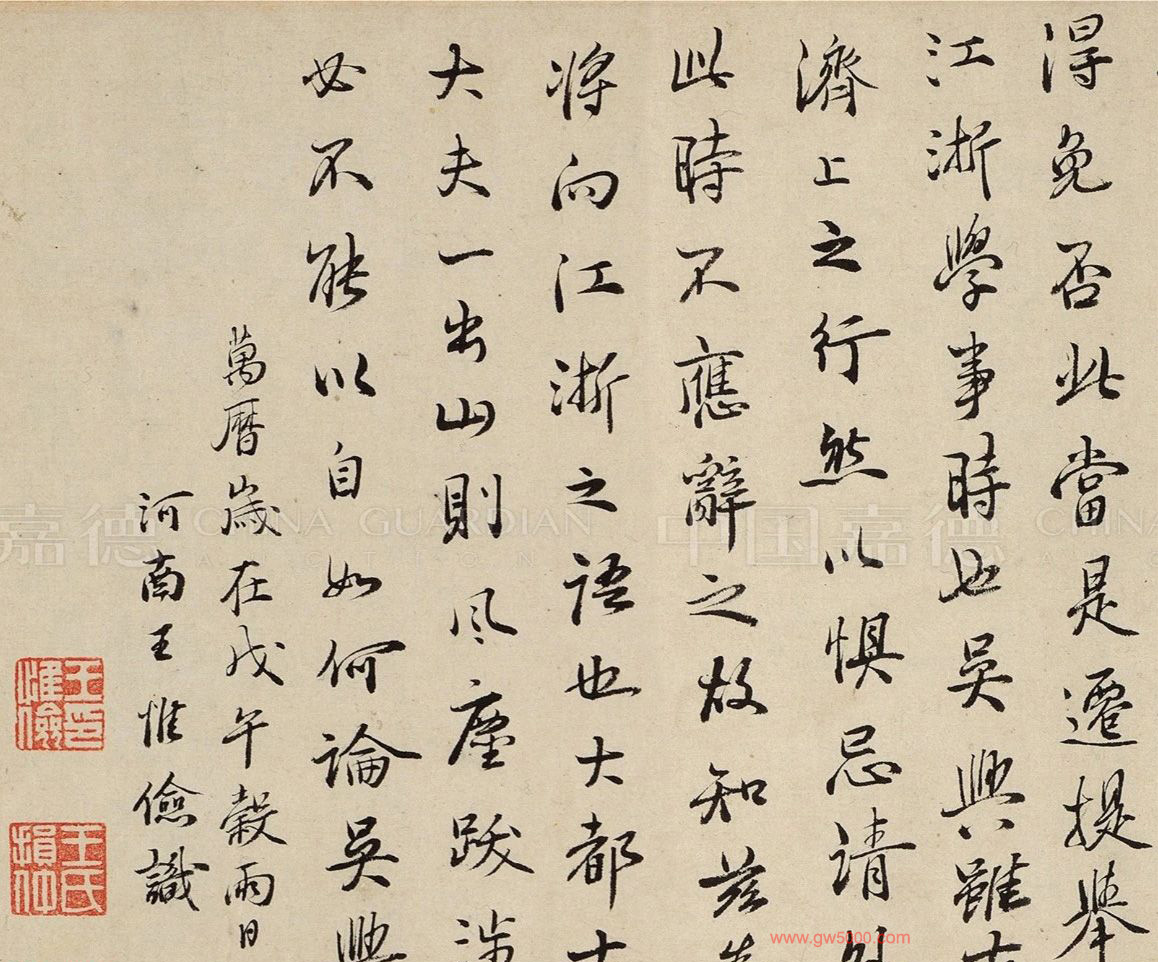 得免否此當是遷提舉
江浙學事時也吳興雖
濟上之行然以惧忌請
此時不應辭之故知茲
將向江浙之語也大都士
大夫一出山則風塵跋涉
必不能以自如何論吳興
萬曆歲在戊午穀雨日
河南王惟儉識
王惟儉印
王氏損仲
中国嘉德
CHINA GUARDIAN
AUCTION
www.gw5000.com